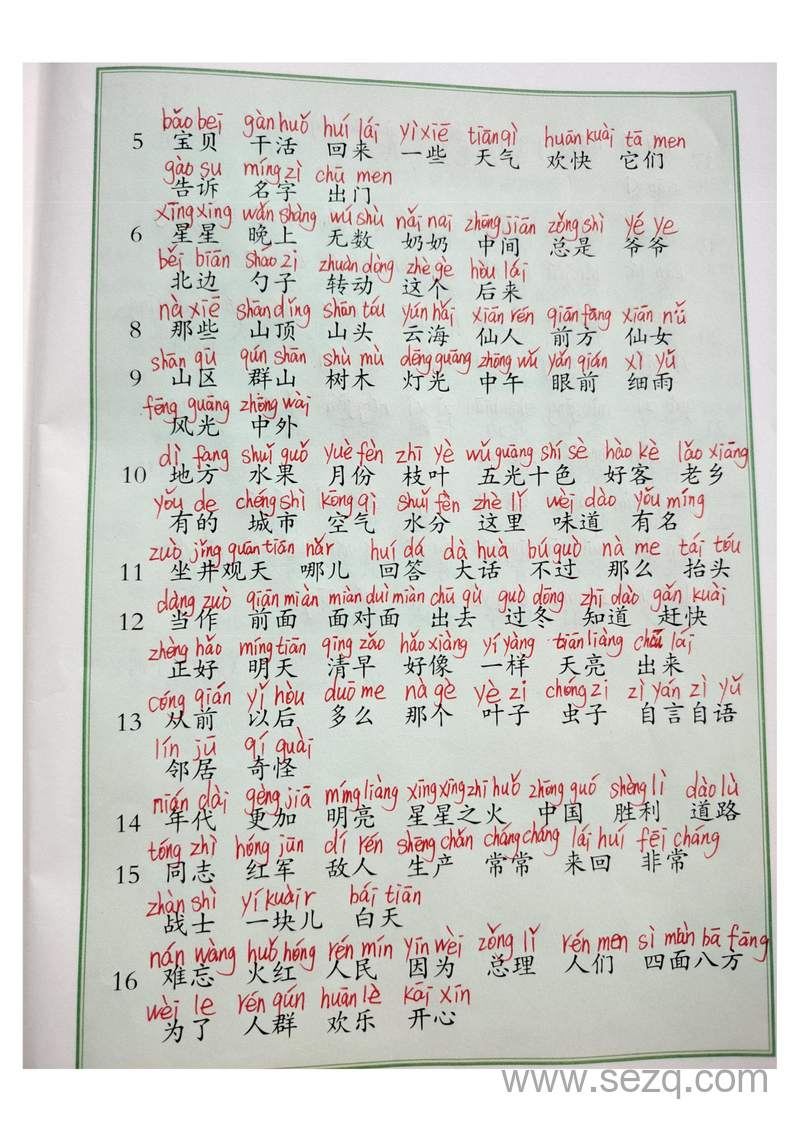 bǎo bèi gàn huǒ huí lái yì xiē tiān qì huān kuài tā men
5 宝贝 干活 回来 一些 天气 欢快 它们
gào su míng zì chū men
告诉 名字 出门
xīng xing wǎn shàng wú shù nǎi nai zhōng jiān zǒng shì yé ye
6 星星 晚上 无数 奶奶 中间 总是 爷爷
běi biān sháo zi zhuàn dòng zhè gè hòu lái
北边 勺子 转动 这个 后来
nà xiē shān dǐng shān tóu yún hǎi xiān rén qián fāng xiān nǚ
8 那些 山顶 山头 云海 仙人 前方 仙女
shān qū qún shān shù mù dēng guāng zhōng wǔ yǎn qián xì yǔ
9 山区 群山 树木 灯光 中午 眼前 细雨
fēng guāng zhōng wài
风光 中外
dì fang shuǐ guǒ yuè fèn zhī yè wǔ guāng shí sè hào kè lǎo xiāng
10 地方 水果 月份 枝叶 五光十色 好客 老乡
yǒu de chéng shì kōng qì shuǐ fèn zhè lǐ wèi dào yǒu míng
有的 城市 空气 水分 这里 味道 有名
zuò jǐng guān tiān nǎr huí dá dà huà bú guò nà me tái tóu
11 坐井观天 哪儿 回答 大话 不过 那么 抬头
dàng zuò qián miàn miàn duì miàn chū qù guò dōng zhī dào gǎn kuài
12 当作 前面 面对面 出去 过冬 知道 赶快
zhèng hǎo míng tiān qīng zǎo hǎo xiàng yí yàng tiān liàng chū lái
正好 明天 清早 好像 一样 天亮 出来
cóng qián yǐ hòu duō me nà gè yè zi chóng zi zì yán zì yǔ
13 从前 以后 多么 那个 叶子 虫子 自言自语
lín jū qí guài
邻居 奇怪
nián dài gèng jiā míng liàng xīng xīng zhī huǒ zhōng guó shèng lì dào lù
14 年代 更加 明亮 星星之火 中国 胜利 道路
tóng zhì hóng jūn dí rén shēng chǎn cháng cháng lái huí fēi cháng
15 同志 红军 敌人 生产 常常 来回 非常
zhàn shì yí kuàir bái tiān
战士 一块儿 白天
nán wàng huǒ hóng rén mín yīn wèi zǒng lǐ rén men sì miàn bā fāng
16 难忘 火红 人民 因为 总理 人们 四面八方
wèi le rén qún huān lè kāi xīn
为了 人群 欢乐 开心
www.sezq.com